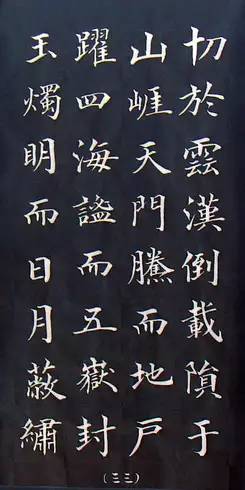 切於雲漢倒載隕于
山崕天門騰而地戶
躍四海謐而五嶽封
玉燭明而日月蔽繡
(三三)